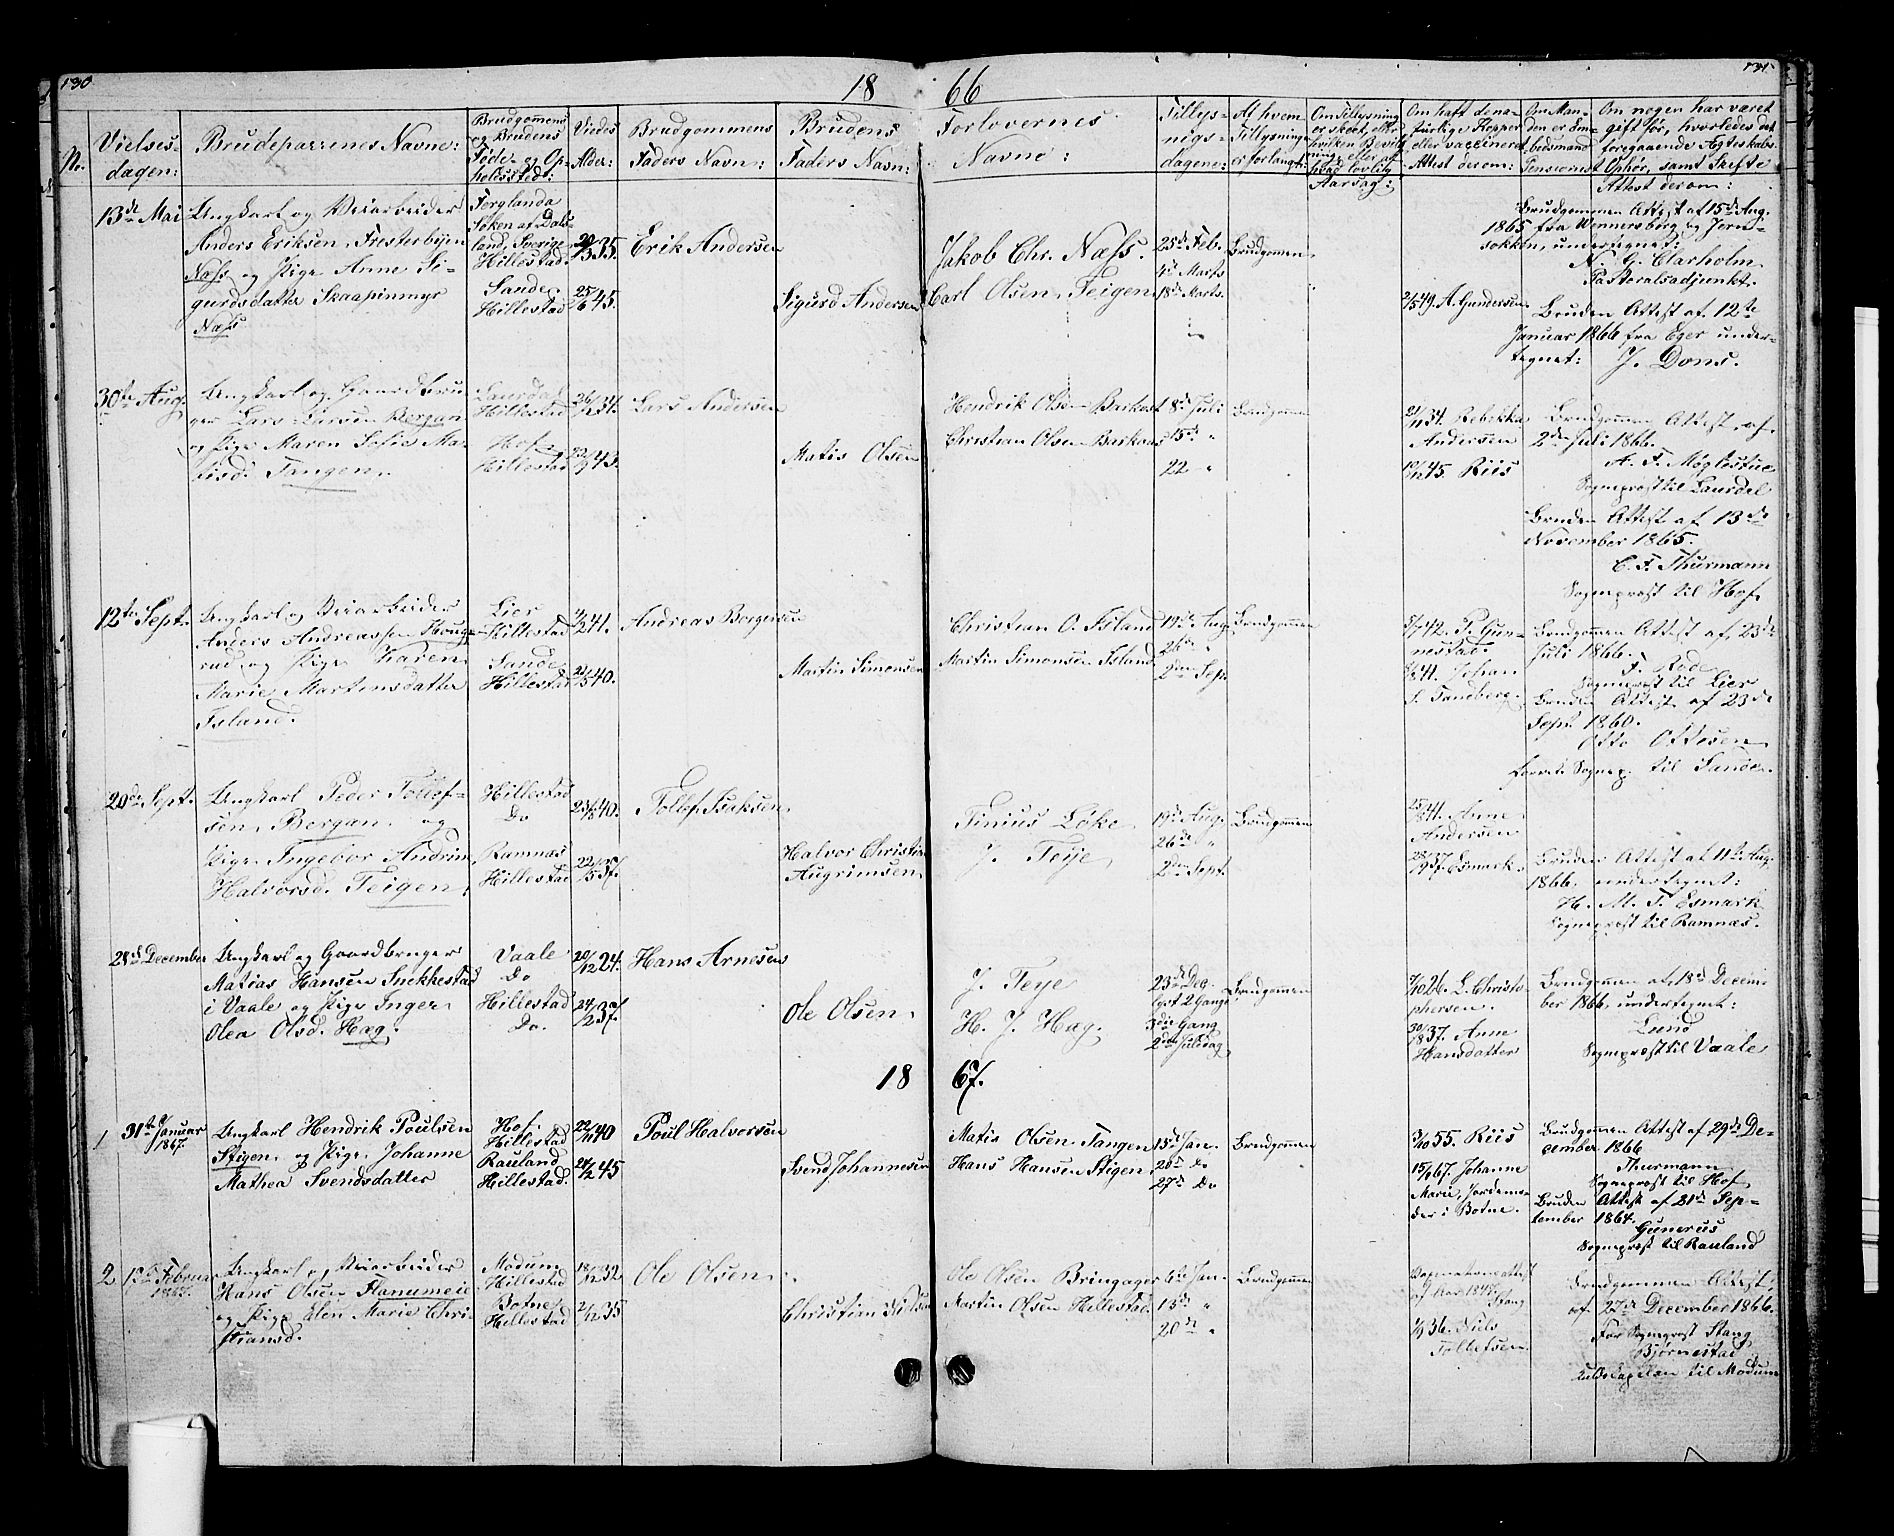 130
18 66
131
No.
Vielses-
dagen:
Brudeparrenes Navne:
Brudgommens
og Brudens
Føde- og Op-
holdssted:
Viedes
Alder:
Brudgommens
Faders Navn:
Brudens
Faders Navn:
Forlovernes
Navne:
Tillys-
nigs-
dagene:
Af hvem
Tillysning
er forlangt:
Om Tillysning
er skeet, eller
hvilken Bevil-
ning, eller af
hvad lovlig
Aarsag:
Om haft de na-
turlige Kopper
eller vaccineret
Attest derom:
Om Man-
den er Am-
bedsmand
Pensionist
Om nogen har været
gift før, hvorledes det
foregaaende Ægteskabs
Ophør, samt Skifte
Attest derom:
13de Mai
Ungkarl og Veiarbeider
Anders Eriksen Fresterbyen
Næss og Pige Anne Si-
gurdsdatter Skaapinmyr
Næss
Ferglanda
Soken af Dals-
land, Sverige
Hillestad
Sande
Hillestad
35.
25/6 45.
Erik Andersen
Sigurd Andersen
Jakob Chr. Næss.
Carl Olsen Teigen
25de Feb.
4de Marts
18de Marts.
Brudgommen
2/5 49. A. Gundersen
Brudgommen Attest af 15de Aug.
1865 fra Wennersborg og Jern-
sokken, undertegnet:
N. G. Clarholm
Pastoralsadjunkt.
Bruden Attest af 12te
Januar 1866 fra Eger under-
tegnet: J. Dons.
30te Aug.
Ungkarl og Gaardbru-
ger Lars Larsen Bergan
og Pige Maren Sofie Ma-
tisd. Tangen.
Laurdal
Hillestad
Hof
Hillestad
34.
43.
Lars Andersen
Matis Olsen
Hendrik Olsen Barkost
Christian Olsen Barkost
8de Juli
15de "
22 "
Brudgommen
34. Rebekka
Andersen
10/12 45. Riis
Brudgommen Attest af
2den Juli 1866.
A. F. Møglestue
Sogneprest til Laurdal
Bruden Attest af 13de
November 1865.
C. F. Thurmann
Sogneprest til Hof.
12te Sept.
Ungkarl og Veiarbeider
Anders Andreassen Houge-
rud og Pige Karen
Marie Martinsdatter
Island.
Lier
Hillestad
Sande
Hillestad
41.
40.
Andreas Borgersen
Martin Simonsen
Christian O. Island
Martin Simonsen Island
19de Aug.
26de "
2den Sep.
Brudgommen
42. P. Gun-
nestad.
41. Johan
S. Tandberg.
Brudgommen Attest af 23de
Juli 1866.
F. Rode
Sogneprest til Lier
Bruden Attest af 23de
Sept. 1860.
Otto Ottesen
forret. Sognep. til Sande.
20de Sept.
Ungkarl Peder Tollef-
sen Bergan og
Pige Ingebor Andrine
Halvorsd. Teigen.
Hillestad
Do
Ramnæs
Hillestad
40.
22/5 37.
Tollef Isaksen
Halvor Christian
Augrimsen
Tinius Løke
J. Teije
19de Aug.
26de "
2den Sept.
Brudgommen
41. Anne
Andersen
37. Esmark.
Bruden Attest af 11te Aug.
1866, undertegnet:
H. M. T. Esmark
Sogneprest til Ramnæs.
28de December
Ungkarl og Gaardbruger
Matias Hansen Snekkestad
i Vaale og Pige Inger
Olea Olsd. Hæg.
Vaale
Do
Hillestad
Do.
20/12 24.
24/2 37.
Hans Arnesen
Ole Olsen.
J. Teije
H. J. Hæg.
23de Dec.
1ste 2 Gange
3die Gang
2den Juledag
Brudgommen
26. L. Christo-
phersen.
37. Anne
Hansdatter
Brudgommen af 18de Decem-
ber 1866, undertegnet:
Lund
Sogneprest til Vaale
18 67.
1
31te Januar
1867.
Ungkarl Hendrik Poulsen
Stigen og Pige Johanne
Mathea Svendsdatter
Hof.
Hillestad
Rauland
Hillestad.
40
45
Poul Halvorsen
Svend Johannesen
Matis Olsen Tangen
Hans Hansen Stigen
15de Jan.
20de Do
27de Do
Brudgommen
55. Riis
67. Johanne
Marie, Jordemo-
der i Botne.
Brudgommen Attest af 29de De-
cember 1866
Thurmann
Sogneprest til Hof
Bruden Attest af 21de Sep-
tember 1864.
Gunerus
Sogneprest til Rauland
2
Februar
1867.
Ungkarl og Veiarbeider
Hans Olsen Flanumeie
og Pige Elen Marie Chri-
stiansd.
Modum
Hillestad
Botne
Hillestad
18/12 32
2/12 35
Ole Olsen
Christian Nilsen
Ole Olsen Bringager
Martin Olsen Hillestad.
6te Jan.
13de "
20de "
Brudgommen
Stang
36. Niels
Tollefsen.
Brudgommen Attest
af 27de December 1866.
For Sogneprest Stang
Bjørnestad
Kapelan til Modum